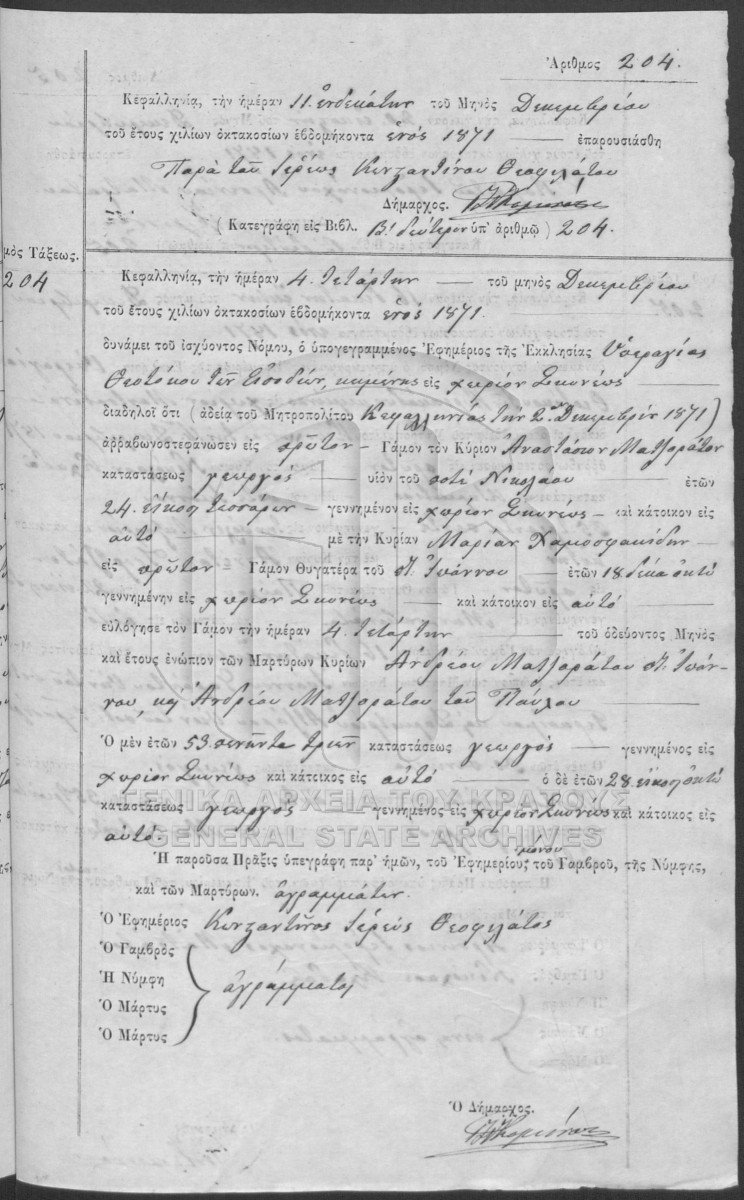 Ἀριθμος 204.
Κεφαλληνίᾳ, τὴν ἡμέραν 11. ἑνδεκάτην τοῦ Μηνὸς Δεκεμβρίου
τοῦ ἔτους χιλίων ὀκτακοσίων ἑβδομήκοντα ἑνός 1871 — ἐπαρουσιάσθη
Παρὰ τοῦ Ἱερέως Κωνσταντίνου Θεοφιλάτου
Δήμαρχος.
( Κατεγράφη εἰς Βιβλ. Β! δεύτερον ὑπ' ἀριθμῷ ) 204.
μὸς Τάξεως.
204
Κεφαλληνίᾳ, τὴν ἡμέραν 4. τετάρτην — τοῦ μηνὸς Δεκεμβρίου
τοῦ ἔτους χιλίων ὀκτακοσίων ἑβδομήκοντα ἑνός 1871.
δυνάμει τοῦ ἰσχύοντος Νόμου, ὁ ὑπογεγραμμένος Ἐφημέριος τῆς Ἐκκλησίας Ὑπεραγίας
Θεοτόκου τῶν Εἰσοδίων, κειμένης εἰς χωρίον —
διαδηλοῖ ὅτι ( ἀδείᾳ τοῦ Μητροπολίτου Κεφαλληνίας τὴν 2 Δεκεμβρίου 1871 )
ἀῤῥαβωνοστεφάνωσεν εἰς πρῶτον — Γάμον τὸν Κύριον Ἀναστάσιον Ματζοράτον
καταστάσεως γεωργός — υἱὸν τοῦ ποτὲ Νικολάου — ἐτῶν
24. εἴκοσι τεσσάρων — γεννημένον εἰς χωρίον — καὶ κάτοικον εἰς
αὐτό — μὲ τὴν Κυρίαν Μαρίαν —
εἰς πρῶτον — Γάμον Θυγατέρα τοῦ π. Ἰωάννου — ἐτῶν 18 δέκα ὀκτώ
γεννημένην εἰς χωρίον — καὶ κάτοικον εἰς αὐτό —
εὐλόγησε τὸν Γάμον τὴν ἡμέραν 4. τετάρτην — τοῦ ὁδεύοντος Μηνὸς
καὶ ἔτους ἐνώπιον τῶν Μαρτύρων Κυρίων Ἀνδρέου Ματζοράτου π. Ἰωάν-
νου, κϳ Ἀνδρέου Ματζοράτου τοῦ Παύλου —
Ὁ μὲν ἐτῶν 53. πενῆντα τριῶν καταστάσεως γεωργός — γεννημένος εἰς
χωρίον καὶ κάτοικος εἰς αὐτό — ὁ δὲ ἐτῶν 28. εἴκοσι ὀκτώ
καταστάσεως γεωργός — γεννημένος εἰς χωρίον καὶ κάτοικος εἰς
αὐτό.
ΓΕΝΙΚΑ ΑΡΧΕΙΑ ΤΟΥ ΚΡΑΤΟΥΣ
GENERAL STATE ARCHIVES
Ἡ παροῦσα Πρᾶξις ὑπεγράφη παρ' ἡμῶν, τοῦ Ἐφημερίου μόνου τοῦ Γαμβροῦ, τῆς Νύμφης,
καὶ τῶν Μαρτύρων. ἀγραμμάτων.
Ὁ Ἐφημέριος Κωνσταντῖνος Ἱερεύς Θεοφιλάτος
Ὁ Γαμβρὸς
Ἡ Νύμφη
ἀγράμματοι
Ὁ Μάρτυς
Ὁ Μάρτυς
Ὁ Δήμαρχος.